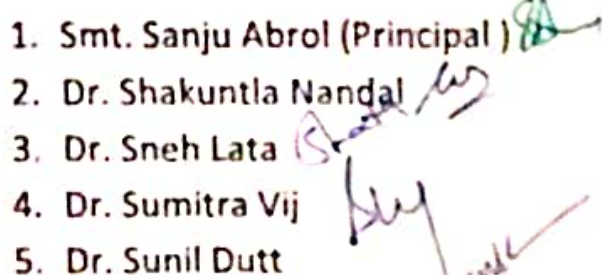 1. Smt. Sanju Abrol (Principal )
2. Dr. Shakuntla Nandal
3. Dr. Sneh Lata
4. Dr. Sumitra Vij
5. Dr. Sunil Dutt